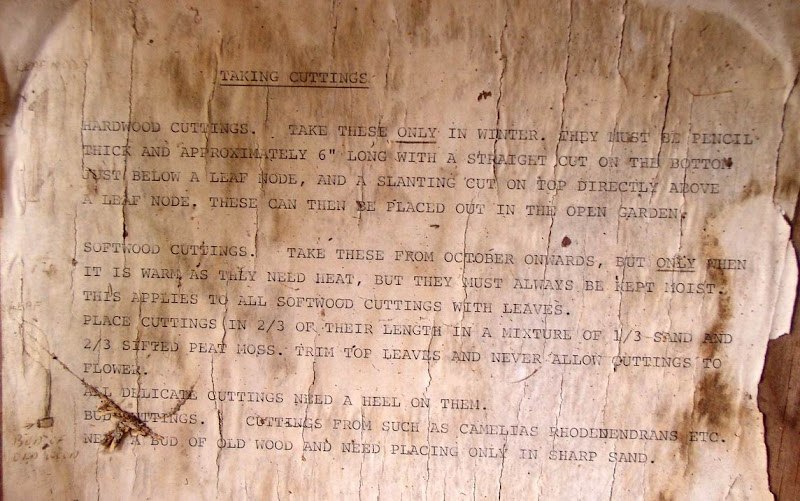 TAKING CUTTINGS
HARDWOOD CUTTINGS. TAKE THESE ONLY IN WINTER. THEY MUST BE PENCIL
THICK AND APPROXIMATELY 6" LONG WITH A STRAIGET CUT ON THE BOTTOM
JUST BELOW A LEAF NODE, AND A SLANTING CUT ON TOP DIRECTLY ABOVE
A LEAF NODE. THESE CAN THEN BE PLACED OUT IN THE OPEN GARDEN.
SOFTWOOD CUTTINGS. TAKE THESE FROM OCTOBER ONWARDS, BUT ONLY WHEN
IT IS WARM AS THEY NEED HEAT, BUT THEY MUST ALWAYS BE KEPT MOIST.
THIS APPLIES TO ALL SOFTWOOD CUTTINGS WITH LEAVES.
PLACE CUTTINGS IN 2/3 OF THEIR LENGTH IN A MIXTURE OF 1/3 SAND AND
2/3 SIFTED PEAT MOSS. TRIM TOP LEAVES AND NEVER ALLOW CUTTINGS TO
FLOWER.
ALL DELICATE CUTTINGS NEED A HEEL ON THEM.
BUD CUTTINGS. CUTTINGS FROM SUCH AS CAMELIAS RHODENENDRANS ETC.
NEED A BUD OF OLD WOOD AND NEED PLACING ONLY IN SHARP SAND.